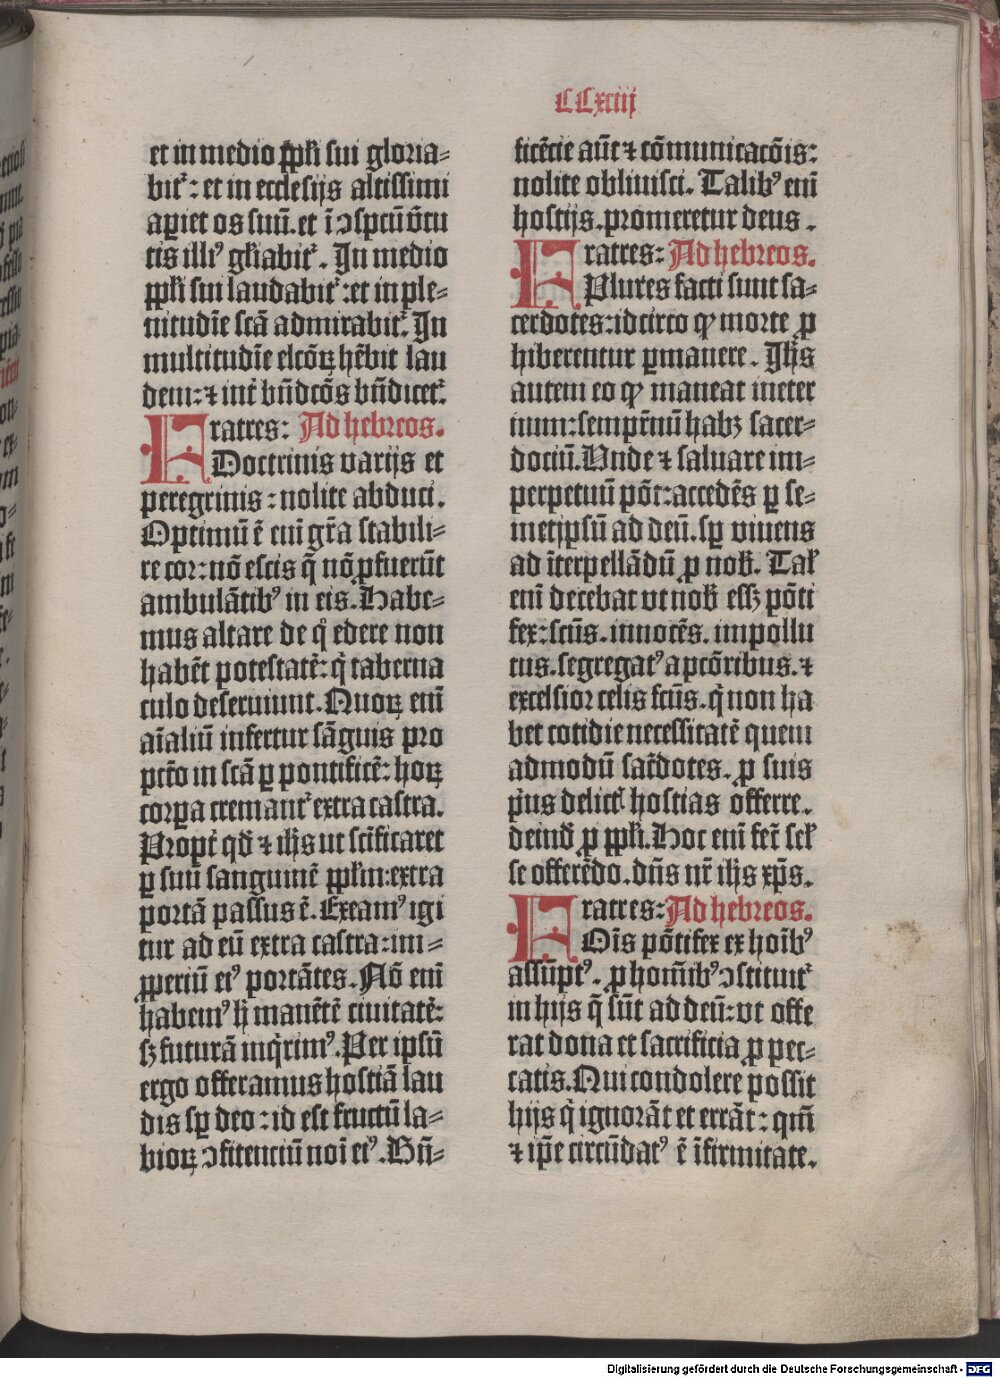 CCxciij
et in medio ꝓpl̃i sui gloria⸗
bit᷑: et in ecclesijs altissimi
apiet os suũ. et ĩ ↄspcũ ỽtu
tis illi⁹ gl̃iabit᷑. In medio
ꝓpl̃i sui laudabit᷑: et in ple⸗
nitudĩe scã admirabit᷑. In
multitudĩe elcõꝝ hẽbit lau
dem: ⁊ int̃ bñdcõs bñdicet᷑.
Fratres: Ad hebreos.
Doctrinis varijs et
peregrinis: nolite abduci.
Optimũ ẽ eni gr̃a stabili⸗
re cor: nõ escis q̃ nõ ꝓfuerũt
ambulãtib⁹ in eis. Habe⸗
mus altare de q̊ edere non
habẽt potestatẽ: q̇ taberna
culo deseruiunt. Quoꝝ enĩ
aĩaliũ infertur sãguis pro
pctõ in scã ꝑ pontificẽ: hoꝝ
corpa cremant᷑ extra castra.
Propt̃ qđ ⁊ ihs ut sc̃ificaret
ꝑ suũ sanguinẽ ꝓpl̃m: extra
portã passus ẽ. Exeam⁹ igi
tur ad eũ extra castra: im⸗
ꝓperiũ ei⁹ portãtes. Nõ enĩ
habem⁹ h̃ manẽtẽ ciuitatẽ:
sꝫ futurã inq̇rim⁹. Per ipsũ
ergo offeramus hostiã lau
dis sꝑ deo: id est fructũ la⸗
bioꝝ ↄfitenciũ noĩ ei⁹. Bñ⸗
ficẽcie aũt ⁊ cõmunicacõis:
nolite obliuisci. Talib⁹ enĩ
hostijs. promeretur deus.
Fratres: Ad hebreos.
Plures facti sunt sa⸗
cerdotes: idcirco ꝙ morte ꝓ
hiberentur ꝑmanere. Ihs
autem eo ꝙ maneat in eter
num: semp̃rnũ habꝫ sacer⸗
dociũ. Unde ⁊ saluare im⸗
perpetuũ põt: accedẽs ꝑ se⸗
metip̃sũ ad deũ. sꝑ viuens
ad ĩterpellãdũ ꝓ nob̃. Tal̃
enĩ decebat ut nob̃ essꝫ põti
fex: scũs. innocẽs. impollu
tus. segregat⁹ a pctõribus. ⁊
excelsior celis fcũs. q̇ non ha
bet cotidie necessitatẽ quem
admodũ sac̃dotes. ꝓ suis
ṗus delict̃ hostias offerre.
deinđ ꝓ ꝓpl̃i. Hoc enĩ fec̃ sel̃
se offerẽdo. dñs nr̃ ihs xp̃s.
Fratres: Ad hebreos.
Oĩs põtifex ex hoĩb⁹
assũpt⁹. ꝓ homĩb⁹ ↄstituit᷑
in hijs q̃ sũt ad deũ: ut offe
rat dona et sacrificia ꝓ pec⸗
catis. Qui condolere possit
hijs q̇ ignorãt et errãt: qm̃
⁊ ip̃e circũdat⁹ ẽ ĩfirmitate.
Digitalisierung gefördert durch die Deutsche Forschungsgemeinschaft - DFG